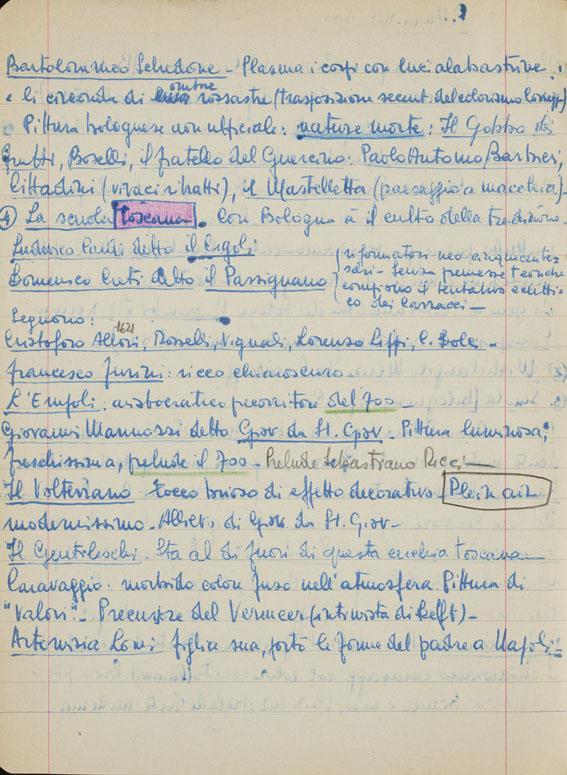 Bartolommeo Schedone - Plasma i corpi con luci alabastrine
e li circonda di ombre rossastre (trasposizione secent. del colorismo
Pittura bolognese non ufficiale: nature morte: Il Gobbo dei
Frutti, Boselli, il fratello del Guercino: Paolo Antonio Barbieri,
Cittadini (vivaci ritratti), il Mastelletta (paesaggio a macchia)-
4) La scuola toscana. Con Bologna à il culto della tradizione.
Ludovico Cardi detto il Cigoli
Domenico Creti detto il Passignano
riformatori neo cinquecente
schi - senza premesse teoriche
compiono il tentativo eclitti
co dei Carracci -
Seguono:
1621
Cristoforo Allori, Rosselli, Vignali, Lorenzo Lippi, C. Dolci -
Francesco Furini: ricco chiaroscuro
L'Empoli: aristocratico precorritore del 700 -
Giovanni Mannozzi detto Giov. da St. Giov. Pittura luminosa,
freschissima, prelude il 700 - Prelude Sebastiano Ricci
Il Volterrano: tocco brioso di effetto decorativo. Plein air
modernissimo - Allievo di Giov. da St. Giov -
Il Gentileschi. Sta al di fuori di questa cerchia toscana
Caravaggio. morbido colore fuso nell'atmosfera. Pittura di
"Valori" - Precursore del Vermeer (intimista di Delft) -
Artemisia Lomi figlia sua, portò le forme del padre a Napoli -